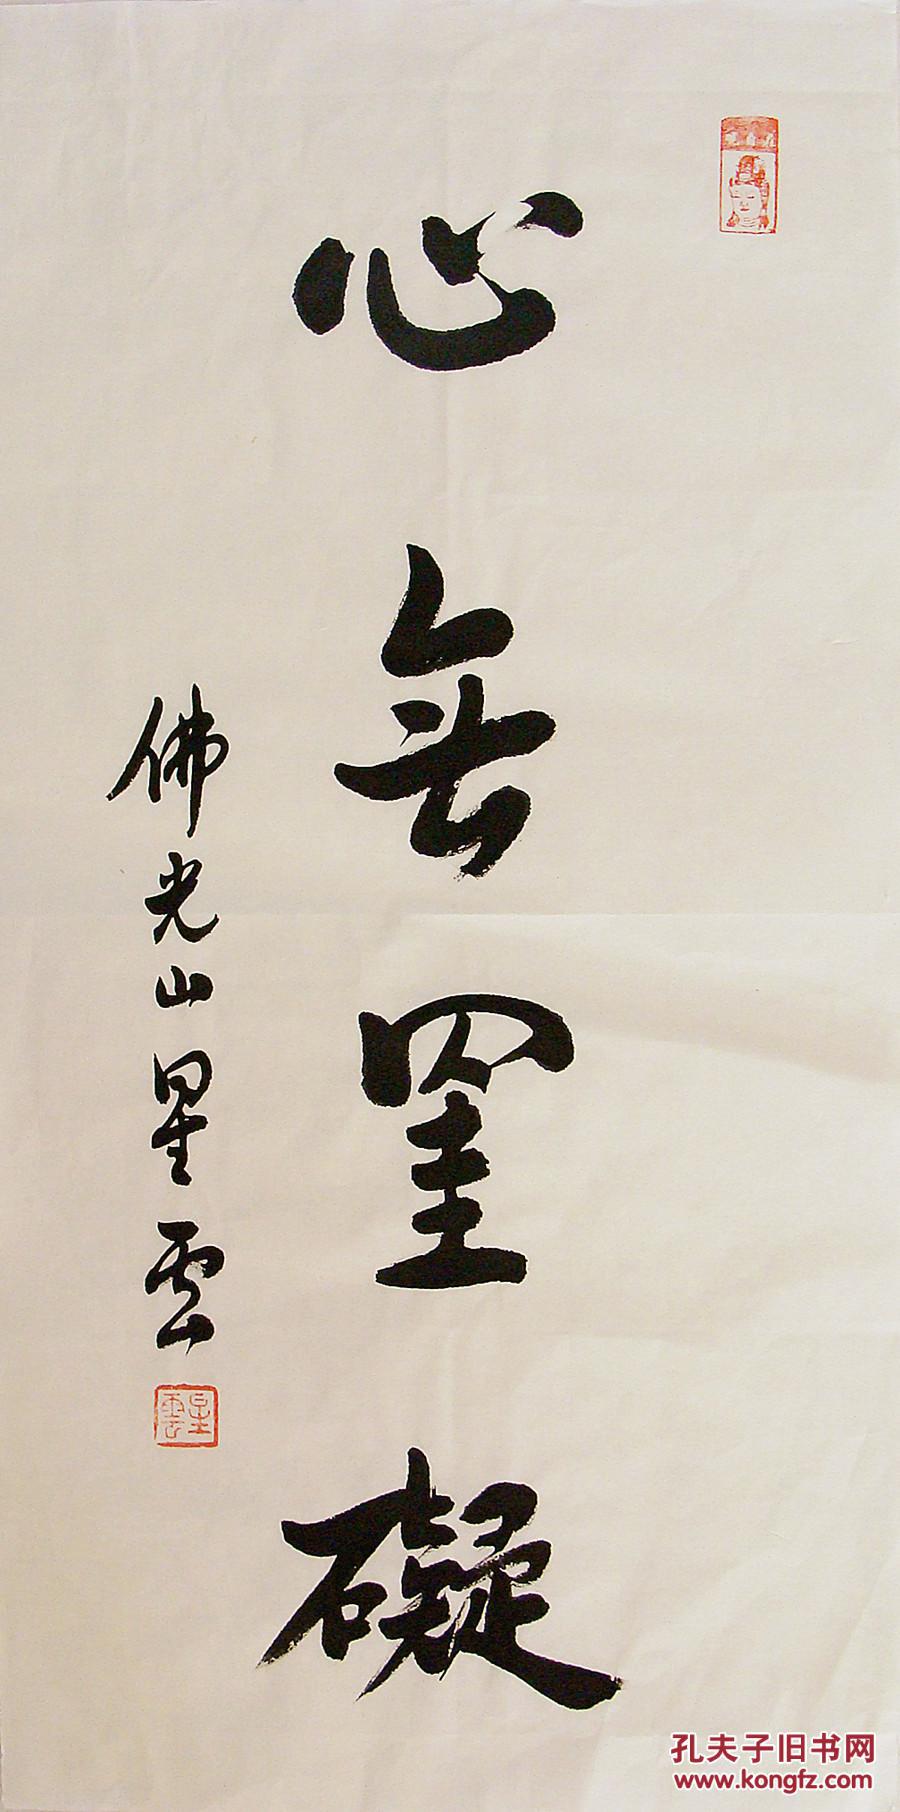 心無罣礙
佛光山星雲
星雲
孔夫子旧书网
www.kongfz.com